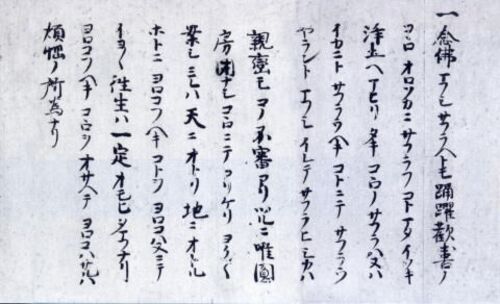 一念佛マフシサフラヘトモ踊躍歡喜ノ
コヽロオロソカニサフラフコトマタイソキ
浄土ヘマヒリタキコヽロノサフラハヌハ
イカニトサフラウヘキコトニテサフラウ
ヤラントマフシイレテサフラヒシカハ
親鸞モコノ不審アリツルニ唯圓
房オナシコヽロニテアリケリヨク〱
案シミレハ天ニオトリ地ニオトル
ホトニヨロコフヘキコトヲヨロコハヌニテ
イヨ〱往生ハ一定オモヒタマフナリ
ヨロコフヘキコヽロヲオサヘテヨロコハサルハ
煩悩ノ所為ナリ